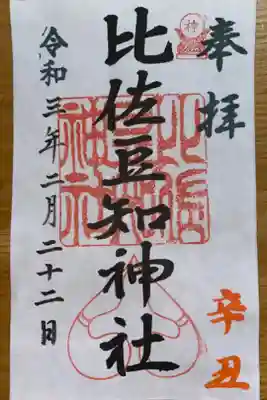 奉拝
辛丑
比佐豆知神社
令和三年二月二十二日